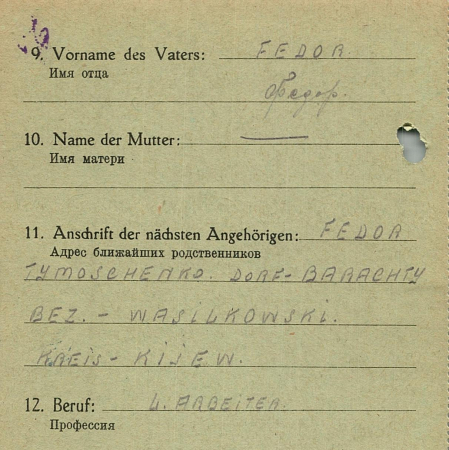 9. Vorname des Vaters: FEDOR
Имя отца
Федор.
10. Name der Mutter: —
Имя матери
11. Anschrift der nächsten Angehörigen: FEDOR
Адрес ближайших родственников
TYMOSCHENKO. DORF-BARACHTY
BEZ. - WASILKOWSKI.
KREIS - KIJEW.
12. Beruf: L. ARBEITER.
Профессия